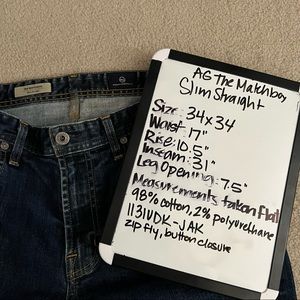 AG The Matchbox
Slim Straight
Size: 34x34
Waist: 17"
Rise: 10.5"
Inseam: 31"
Leg Opening: 7.5"
Measurements taken flat
98% cotton, 2% polyurethane
1131UDK-JAK
zip fly, button closure